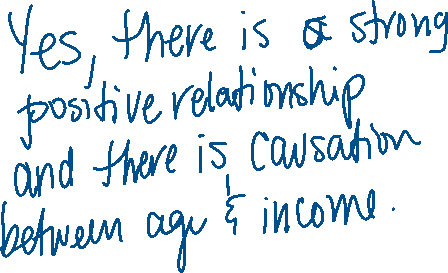 Yes, there is a strong
positive relationship
and there is causation
between age & income.